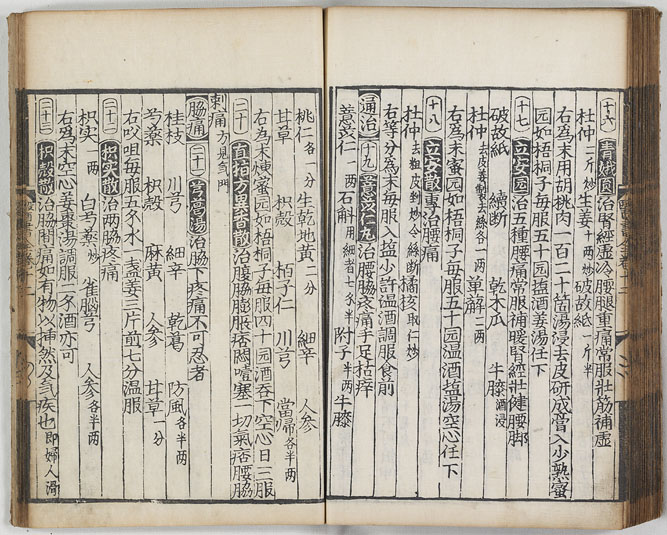 十六 青娥圓 治腎經虛冷腰腿重痛常服壯筋補虛
杜仲一斤炒 生姜十两炒 破故紙一斤半
右為末用胡桃肉一百二十箇湯浸去皮研成膏入少熟蜜
园如梧桐子每服五十园塩酒姜湯任下
十七 立安园 治五種腰痛常服補暖腎經壯健腰脚
破故紙 續斷 乾木瓜 牛膝酒浸
杜仲去皮姜製去絲各一两 萆薢二两
右為末蜜园如梧桐子每服五十园温酒塩湯空心任下
十八 立安散 專治腰痛
杜仲去粗皮剉炒令絲斷 橘核取仁炒
右等分為末每服入塩少許温酒調服食前
通治 十九 薏苡仁丸 治腰脇疼痛手足枯瘁
薏苡仁一两 石斛用細者七㦮半 附子半两 牛膝
桃仁各一分 生乾地黄二分 細辛 人参
甘草 枳殼 栢子仁 川芎 當歸各半两
右為末煉蜜园如梧桐子每服四十园酒吞下空心日三服
二十 直指方異香散 治腹脇膨脹痞悶噎塞一切氣痞腰脇
刺痛方見氣門
脇痛 二十一 芎葛湯 治脇下疼痛不可忍者
桂枝 川芎 細辛 乾葛 防風各半两
芍藥 枳殼 麻黄 人参 甘草一分
右㕮咀每服五㦮水一盞姜三片煎七分温服
二十二 枳实散 治两脇疼痛
枳实一两 白芍藥炒 雀脳芎 人参各半两
右為末空心姜棗湯調服二㦮酒亦可
二十三 枳殼散 治脇間痛如有物以揷然及氣疾也即婦人滑